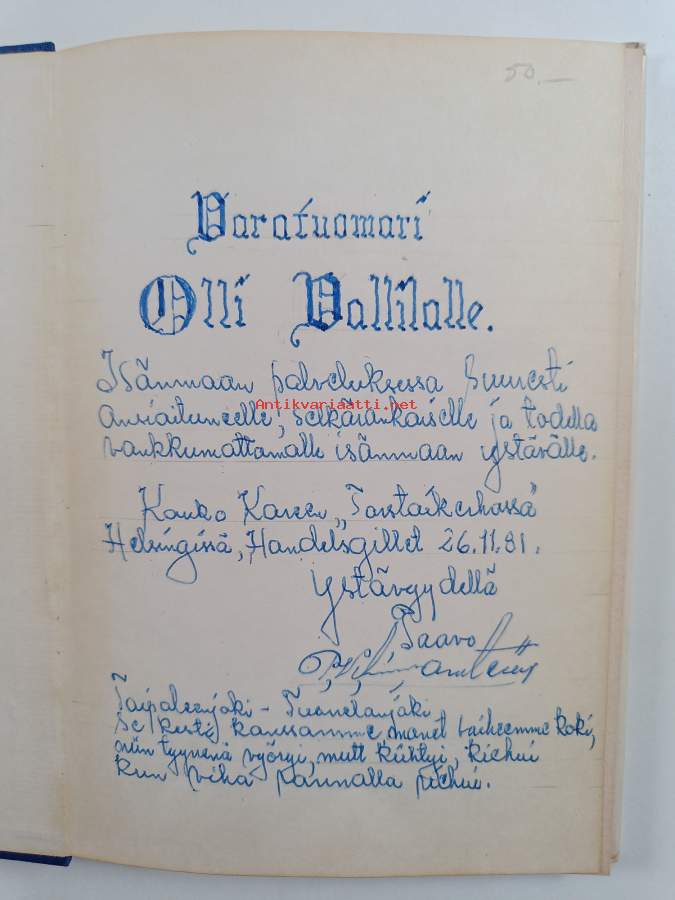 50.—
Varatuomari
Olli Vallilalle.
Isänmaan palveluksessa suuresti
ansioituneelle, selkärankaiselle ja todella
Antikvariaatti.net
vankkumattomalle isänmaan ystävälle.
Kauko Kareen „Torstaikerhossa"
Helsingissä, Handelsgillet 26.11.81.
Ystävyydellä
Paavo
Taipaleenjoki - Tuonelanjoki
se kesti, kanssamme monet vaiheemme koki,
niin tyynenä vyöryi, mutt kiihtyi, kiehui
kun viha rannalla riehui.